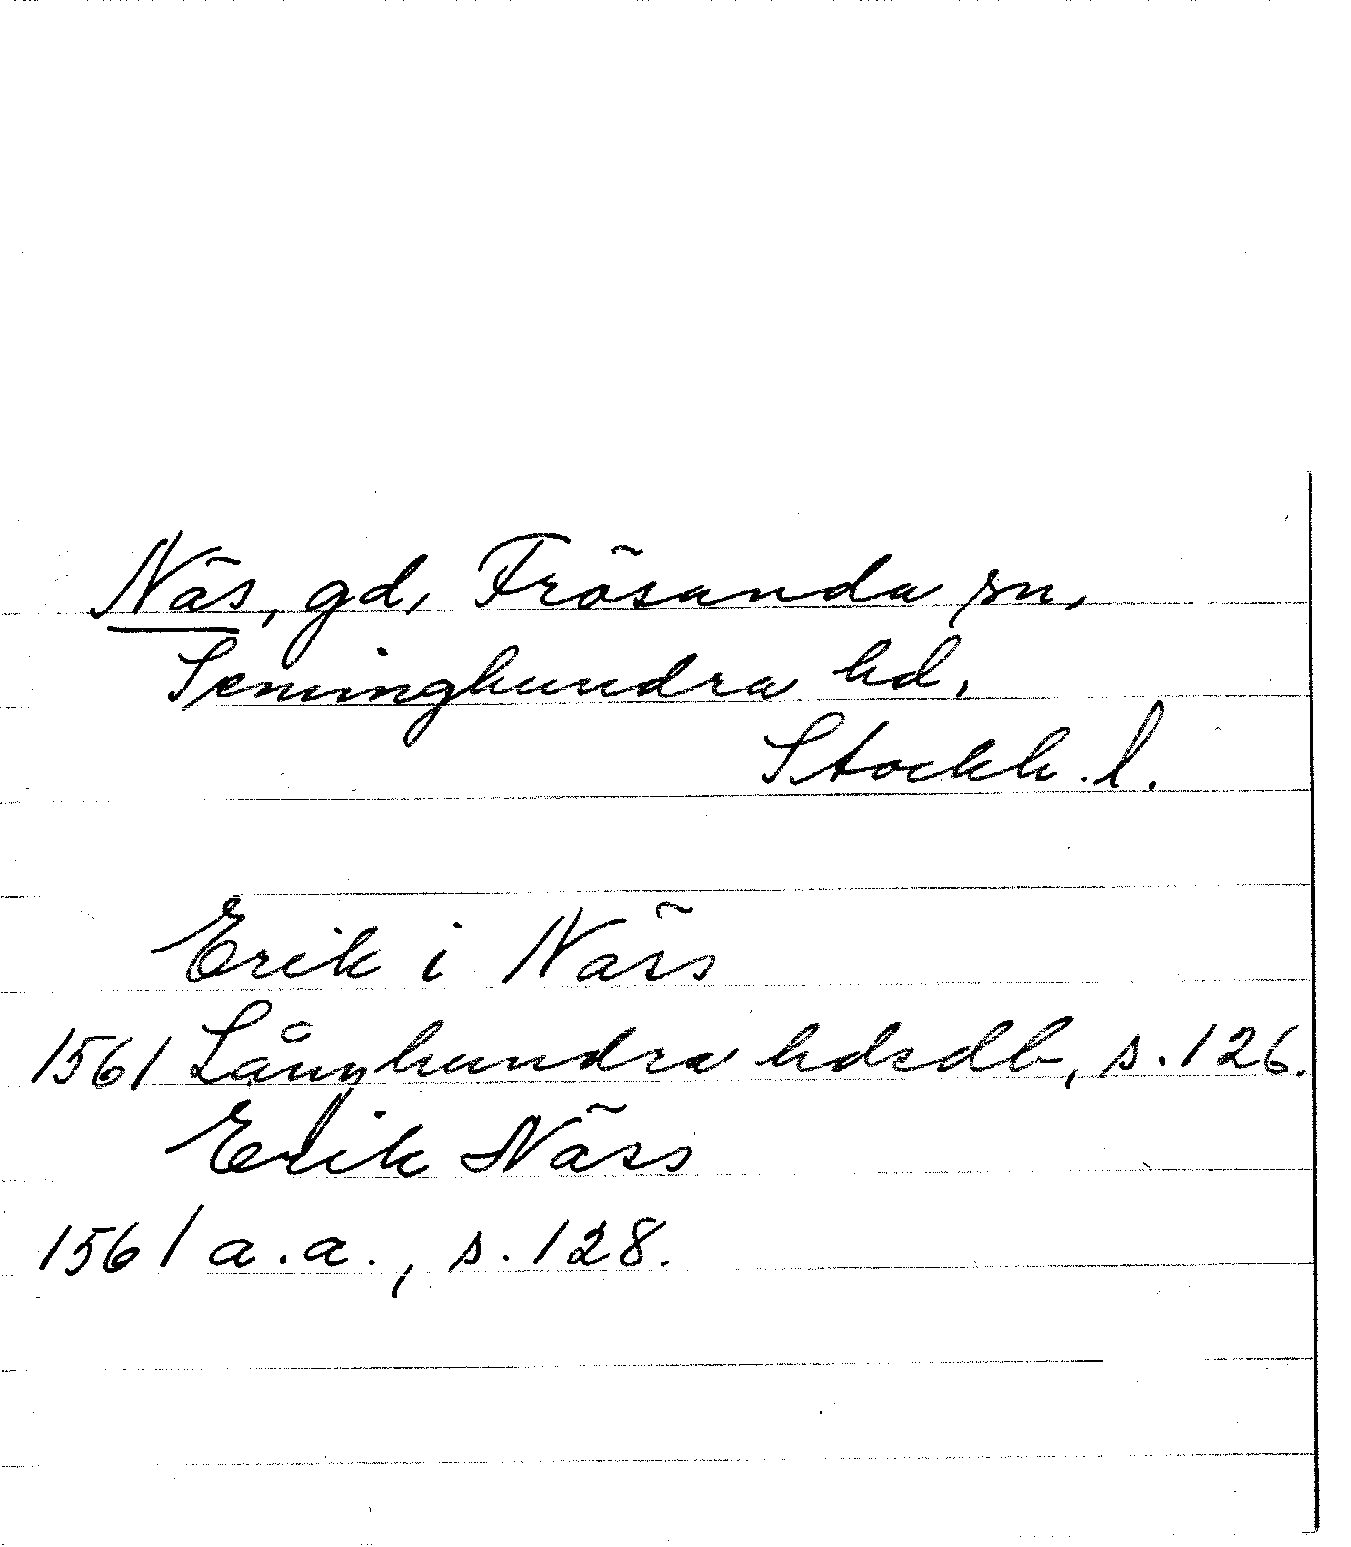 Näs, gd, Frösunda sn,
Seminghundra hd.
Stockh. l.
Erik i Näss
1561 Långhundra hdsdb, s. 126.
Erik Näss
1561 a.a., s. 128.